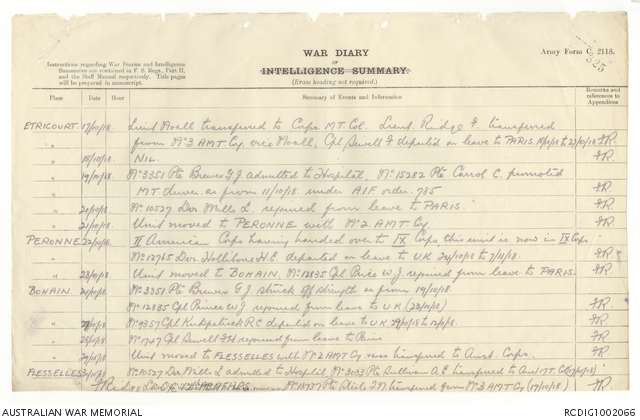 WAR DIARY
or
INTELLIGENCE SUMMARY.
(Erase heading not required.)
Army Form C. 2118.
325
Instructions regarding War Diaries and Intelligence
Summaries are contained in F. S. Regs., Part II.
and the Staff Manual respectively. Title pages
will be prepared in manuscript.
Place Date Hour Summary of Events and Information Remarks and references to Appendices
ETRICOURT 17/10/18. Lieut Noall transferred to Corps M.T. Col. Lieut. Ridge F transferred
" from No 3 AMT Coy vice Noall, Cpl Sewell F departed on leave to PARIS FR
" 18/10/18. NIL. FR
" 19/10/18 No 3351 Pte Brewer G J admitted to Hospital, No 15282 Pte Carrol C. promoted
M.T. driver as from 11/10/18 under A.I.F. order 785 FR
" 20/10/18 No 10527 Dvr Mills L. rejoined from leave to PARIS FR
" 21/10/18 Unit moved to PERONNE with No 2 AMT Coy FR
PERONNE 22/10/18. II American Corps having handed over to IX Corps this unit is now in IX Corps
" No 12765 Dvr H.E. departed on leave to U.K 24/10/18 to 7/11/18. FR
" 23/10/18 Unit moved to BOHAIN. No 12835 Cpl W.J. rejoined from leave to PARIS. FR
BOHAIN 24/10/18 No 3351 Pte Brewer G J struck off strength as from 19/10/18
" No 12835 Cpl W J rejoined from leave to U.K (23/10/18) FR
" No 9357 Cpl Kirkpatrick R C departed on leave to U.K FR
" No 1747 Cpl Sewell F H rejoined from leave to Paris FR
" Unit moved to FLESSELLES with No 2 AMT Coy transferred to Aust. Corps. FR
FLESSELLES No 10527 Dvr Mills L admitted to Hospital, No 3033 Pte Sullivan A. transferred to FR
transferred from No 3 AMT Coy (17/10/18)
AUSTRALIAN WAR MEMORIAL
RCDIG1002066